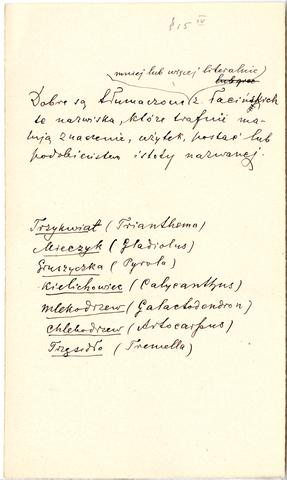 § 15 IV
mniej lub więcej literalnie)
Dobre są tłumaczone z łacińskich
te nazwiska, które trafnie ma-
lują znaczenie, użytek, postać lub
podobieństwo istoty nazwanej.
Trzykwiat (Trianthema)
Mieczyk (Gladiolus)
Gruszyczka (Pyrola)
Kielichowiec (Calycanthus)
Mlekodrzew (Galactodendron)
Chlebodrzew (Artocarpus)
Trzęsidło (Tremella)